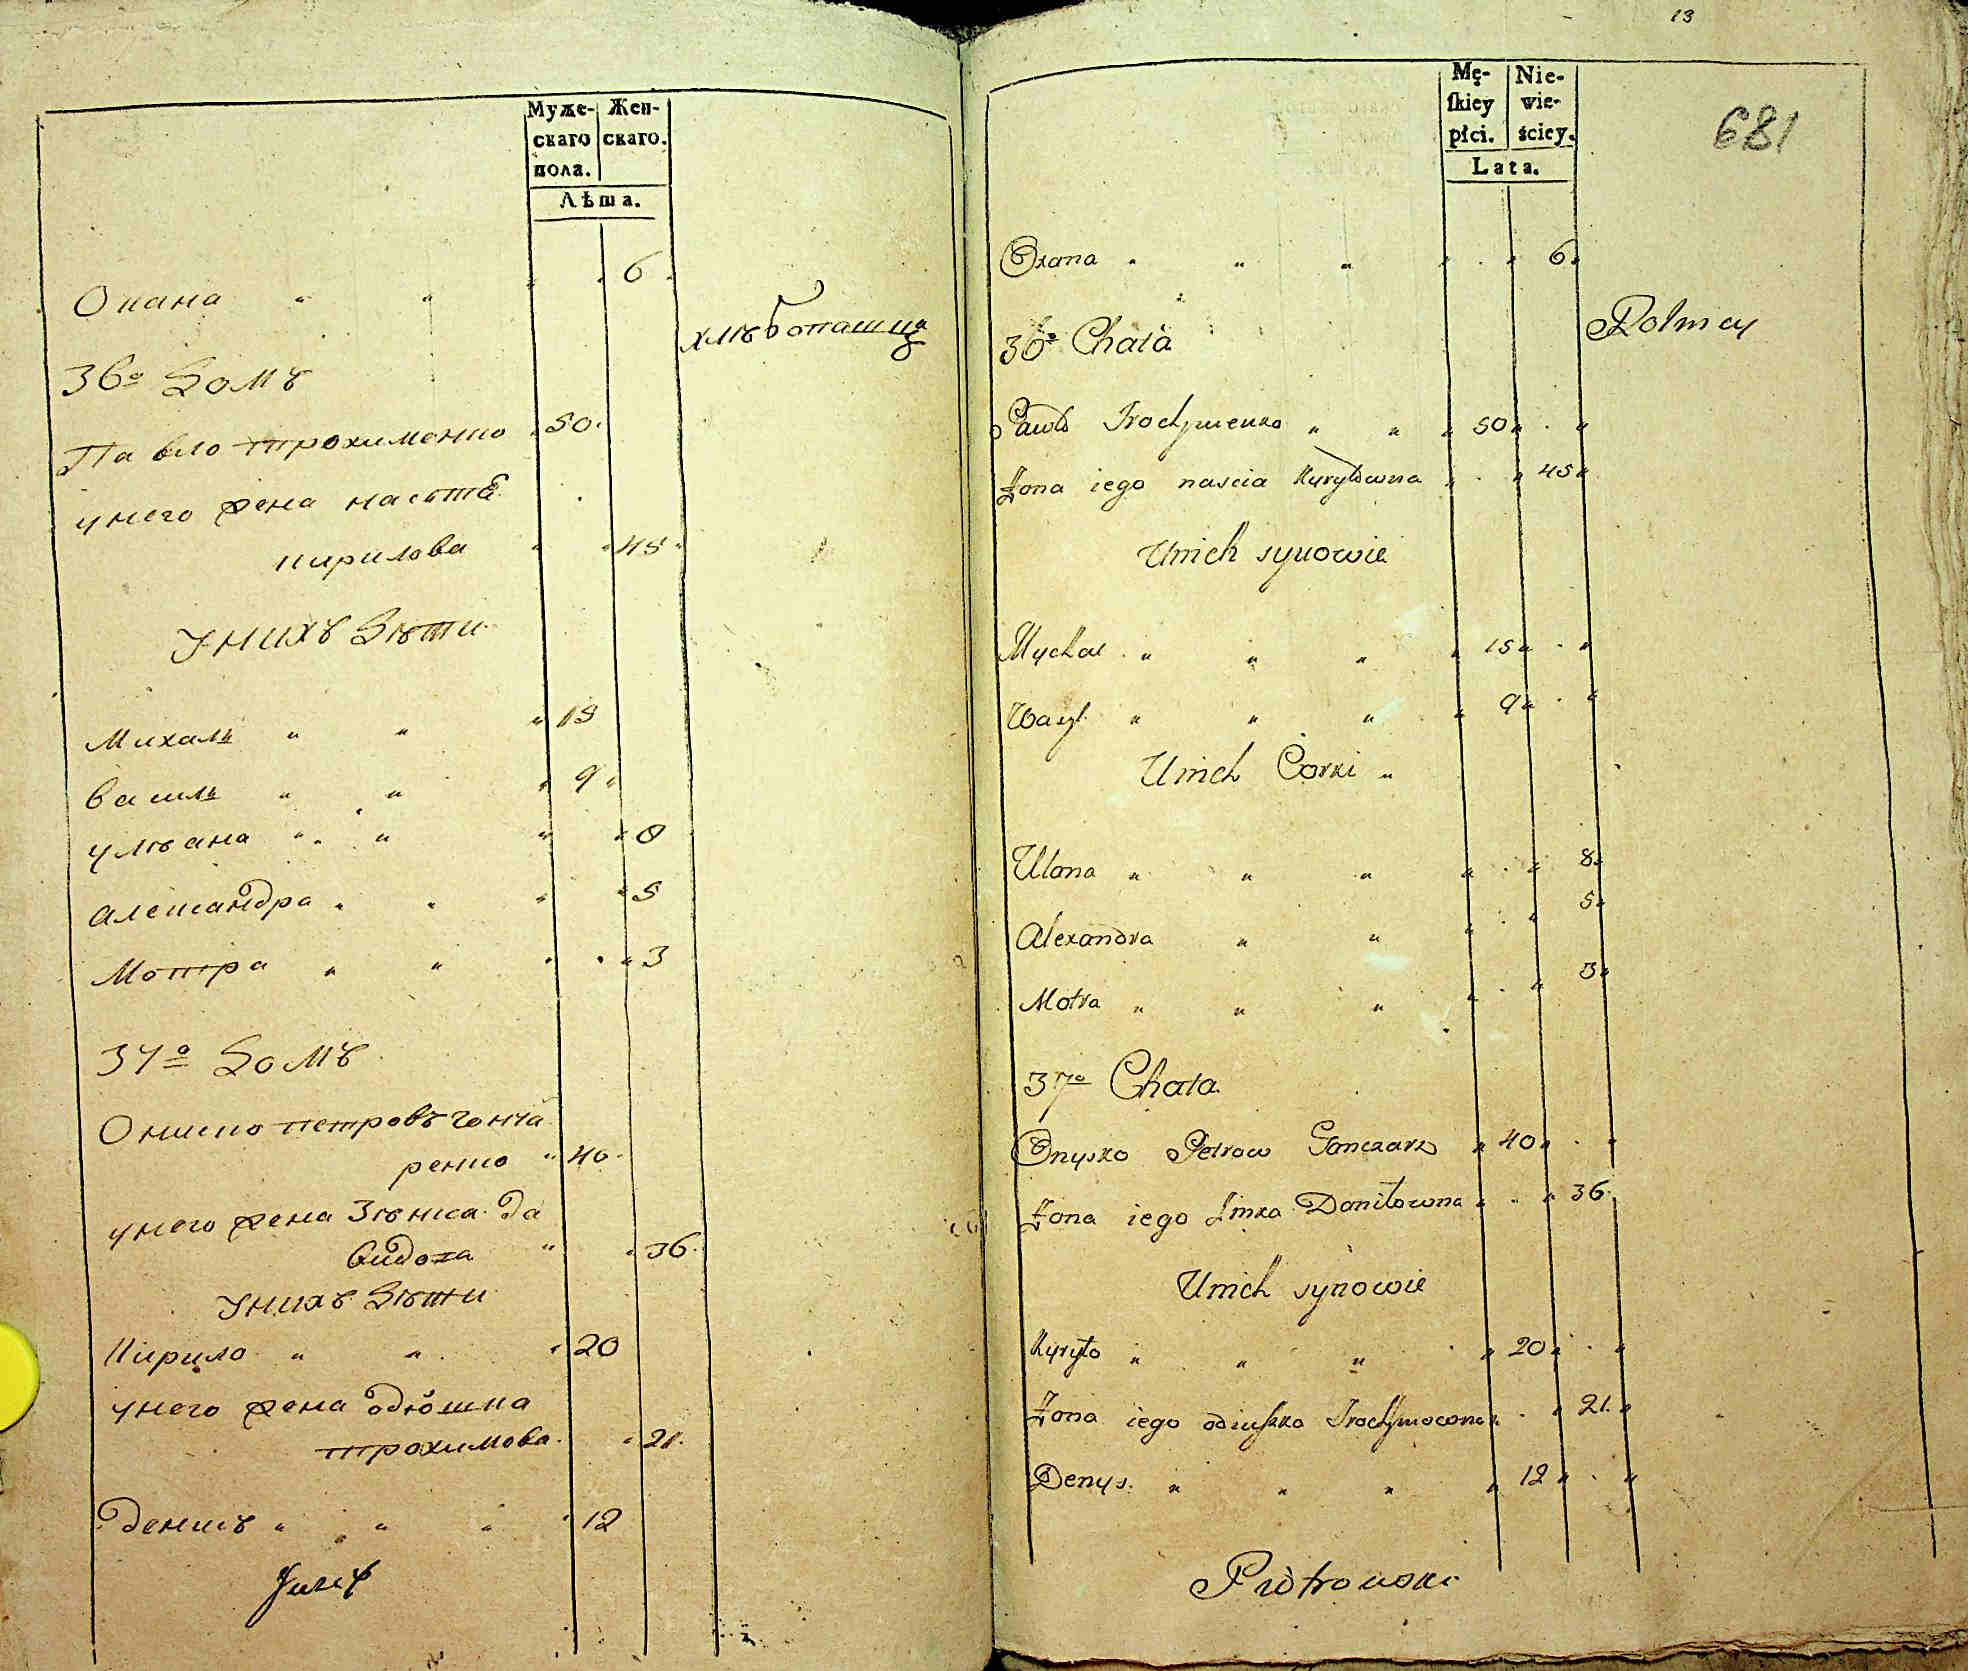 Муже-
скаго
пола.
Жен-
скаго.
Лѣта.
Окана " " " . 6
хлѣбопашца
36º Домъ
Павло трохименко 50
унего жена настя
кирилова " 45
унихъ дѣти
Михаль " " " 15
василь " " " 9
ульана " " " 8
александра " " " 5
Мотра " " " 3
37º Домъ
Ониско петровъ гонча
ренко " 40
унего жена Зѣнка да
видова " " 36
унихъ дѣти
Кирило " " " 20
унего жена одюшка
трохимова " 21
денисъ " " " 12
Jozef
13
681
Mę-
ſkiey
płci.
Nie-
wie-
ściey.
Lata.
Oxana " " " " . " 6
36º Chata
Rolnicy
Pawło Trochymenko " " " 50 " . "
Żona iego nascia Kuryłowna " . " 45
Unich synowie
Mychał " " " " 15 " . "
Wasyl " " " " 9 " . "
Unich Corki "
Ulana " " " " . " 8
Alexandra " " " . " 5
Motra " " " " . " 3
37º Chata
Onysko Petrow Gonczarz " 40 " . "
Żona iego Zinka Daniłowna " . " 36
Unich synowie
Kyryło " " " " 20 " . "
Żona iego odiuszka Trochymowna " . " 21 "
Denys " " " " 12 " . "
Piotrowski